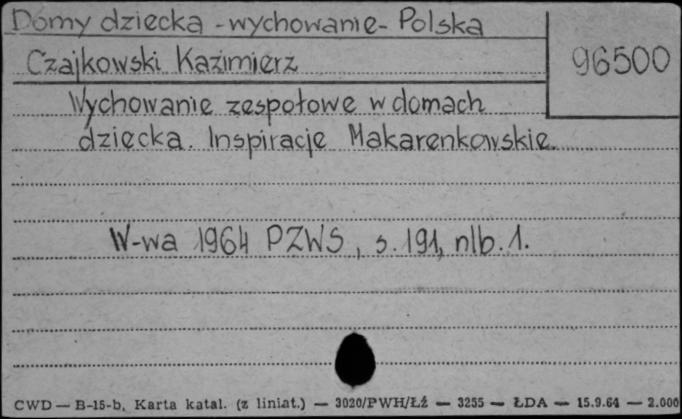 Domy dziecka - wychowanie - Polska
Czajkowski Kazimierz
96500
Wychowanie zespołowe w domach
dziecka. Inspiracje Makarenkowskie.
W-wa 1964 PZWS, s. 191, nlb. 1.
CWD — B-15-b, Karta katal. (z liniat.) — 3020/PWH/Łź — 3255 — ŁDA — 15.9.64 — 2.000